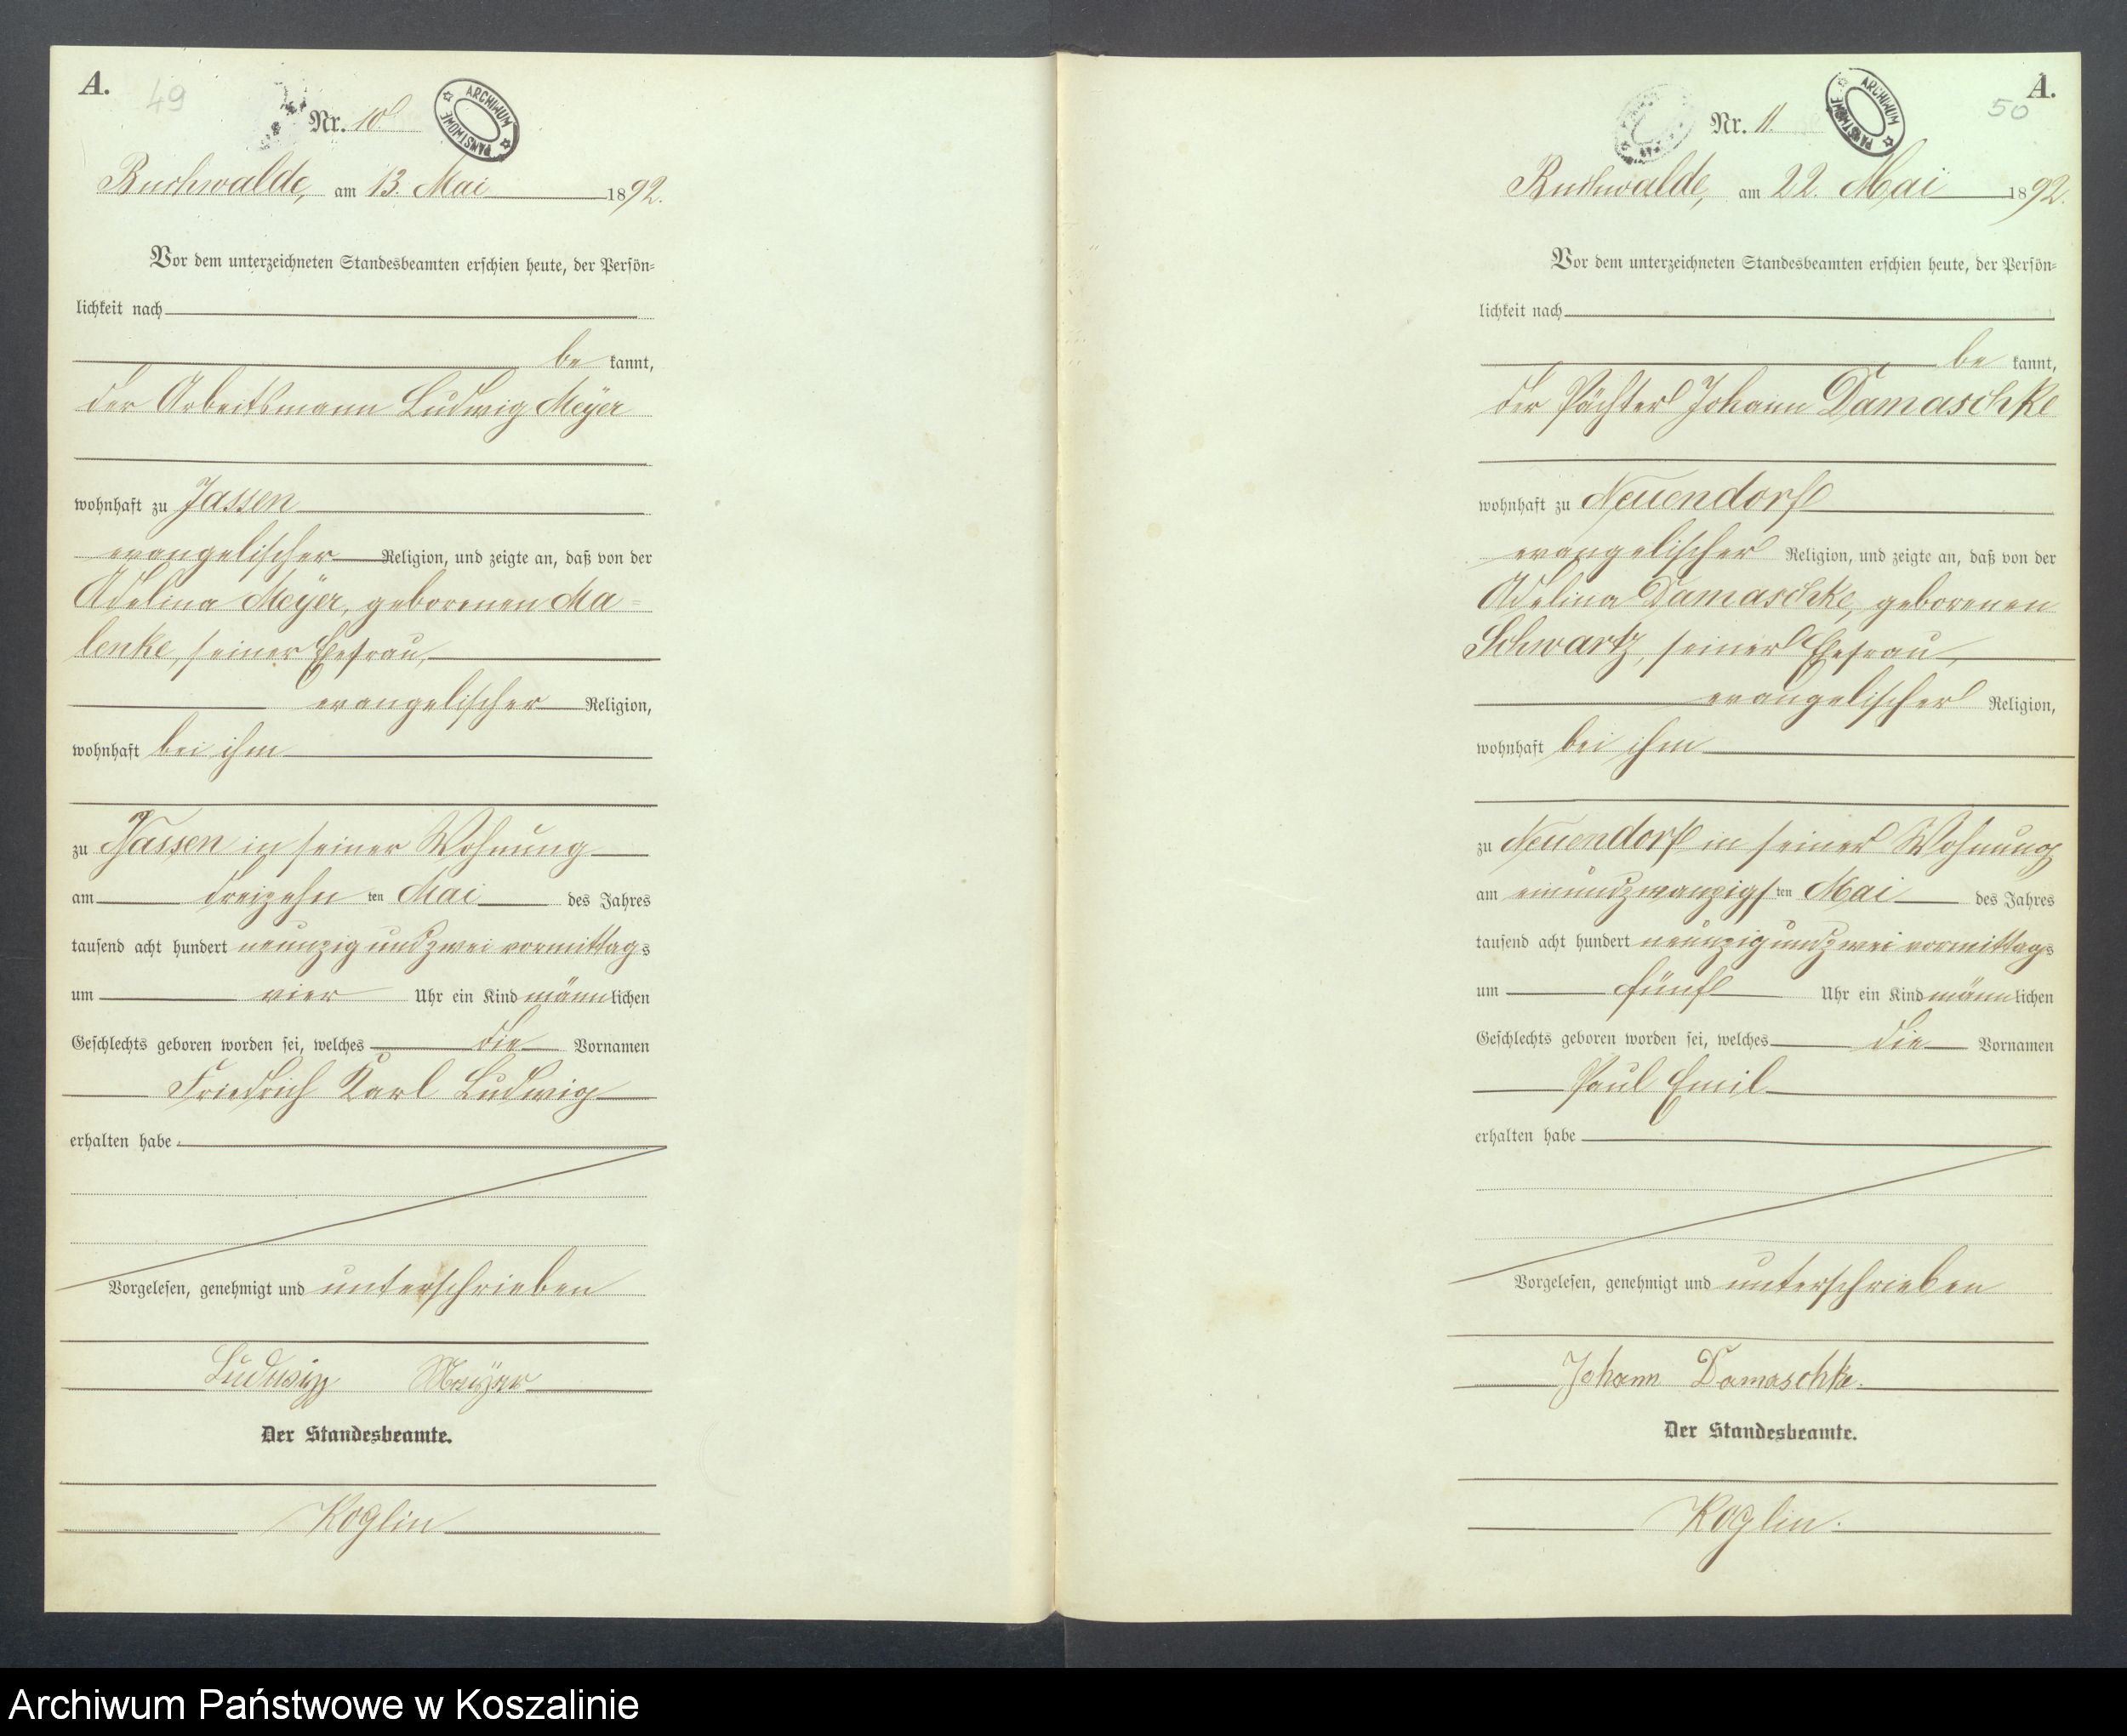 A.
49
Nr. 10.
ARCHIWUM PAŃSTWOWE
Buchwalde, am 13. Mai 1892.
Vor dem unterzeichneten Standesbeamten erschien heute, der Persön-
lichkeit nach
be kannt,
der Arbeitsmann Ludwig Meÿer
wohnhaft zu Jassen
evangelischer Religion, und zeigte an, daß von der
Adelina Meÿer, geborenen Ma-
lenke, seiner Ehefrau,
evangelischer Religion,
wohnhaft bei ihm
zu Jassen in seiner Wohnung
am dreizehn ten Mai des Jahres
tausend acht hundert neunzig und zwei vormittags
um vier Uhr ein Kind männlichen
Geschlechts geboren worden sei, welches die Vornamen
Friedrich Karl Ludwig
erhalten habe.
Vorgelesen, genehmigt und unterschrieben
Ludwig Meÿer
Der Standesbeamte.
Koglin
A.
50
Nr. 11.
ARCHIWUM PAŃSTWOWE
Buchwalde, am 22. Mai 1892.
Vor dem unterzeichneten Standesbeamten erschien heute, der Persön-
lichkeit nach
be kannt,
der Pächter Johann Damaschke
wohnhaft zu Neuendorf
evangelischer Religion, und zeigte an, daß von der
Adelina Damaschke, geborenen
Schwartz, seiner Ehefrau,
evangelischer Religion,
wohnhaft bei ihm
zu Neuendorf in seiner Wohnung
am einundzwanzigs ten Mai des Jahres
tausend acht hundert neunzig und zwei vormittags
um fünf Uhr ein Kind männlichen
Geschlechts geboren worden sei, welches die Vornamen
Paul Emil
erhalten habe
Vorgelesen, genehmigt und unterschrieben
Johann Damaschke.
Der Standesbeamte.
Koglin.
Archiwum Państwowe w Koszalinie